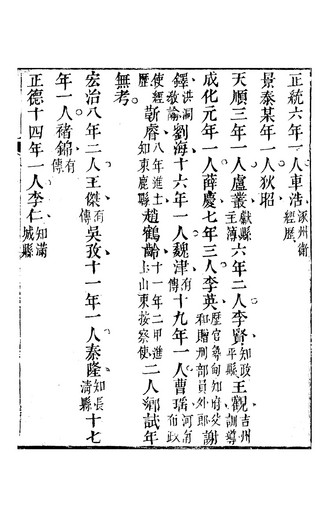 正統六年一人車浩涿州衛經歷
景泰某年一人狄昭
天順三年一人盧叢獻縣主簿六年二人李賢知政平縣王觀吉州訓導
成化元年一人薛慶七年三人李英歷官尋甸知府父和贈刑部員外郎謝
鐸洪洞教諭劉海十六年一人魏津有傳十九年一人曹瑤河南布政
使經歷靳睿八年進士知東鹿縣趙鶴齡十一年二甲進士山東按察使二人鄉試年
無考
宏治八年二人王傑有傳吳孜十一年一人秦隆知長清縣十七
年一人褚錦有傳
正德十四年一人李仁知滿城縣